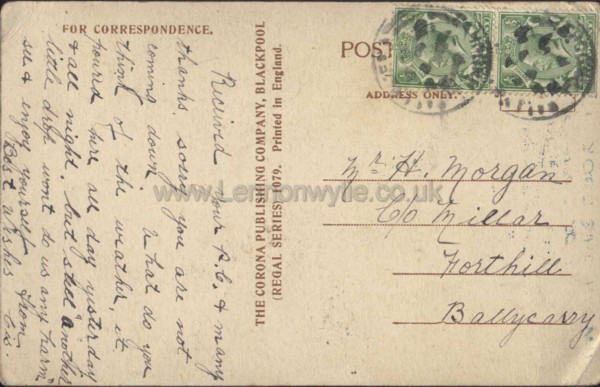 FOR CORRESPONDENCE.
Received your P.C. & many
thanks, sorry you are not
coming down. What do you
think of the weather, it
poured here all day yesterday
& all night, but still "another
little drop wont do us any harm"
see & enjoy yourself
Best wishes from
Cis.
THE CORONA PUBLISHING COMPANY, BLACKPOOL
(REGAL SERIES) 1079. Printed in England.
POST
ADDRESS ONLY.
Mr H. Morgan
C/o Millar
Forthill
Ballycarry
www.Lennonwylie.co.uk